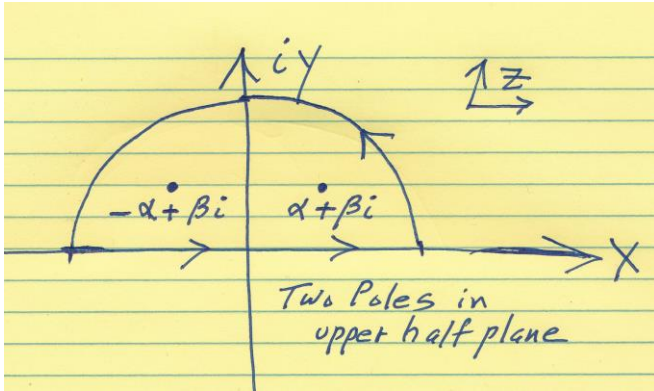 iy
z
-α+βi
α+βi
x
Two Poles in
upper half plane